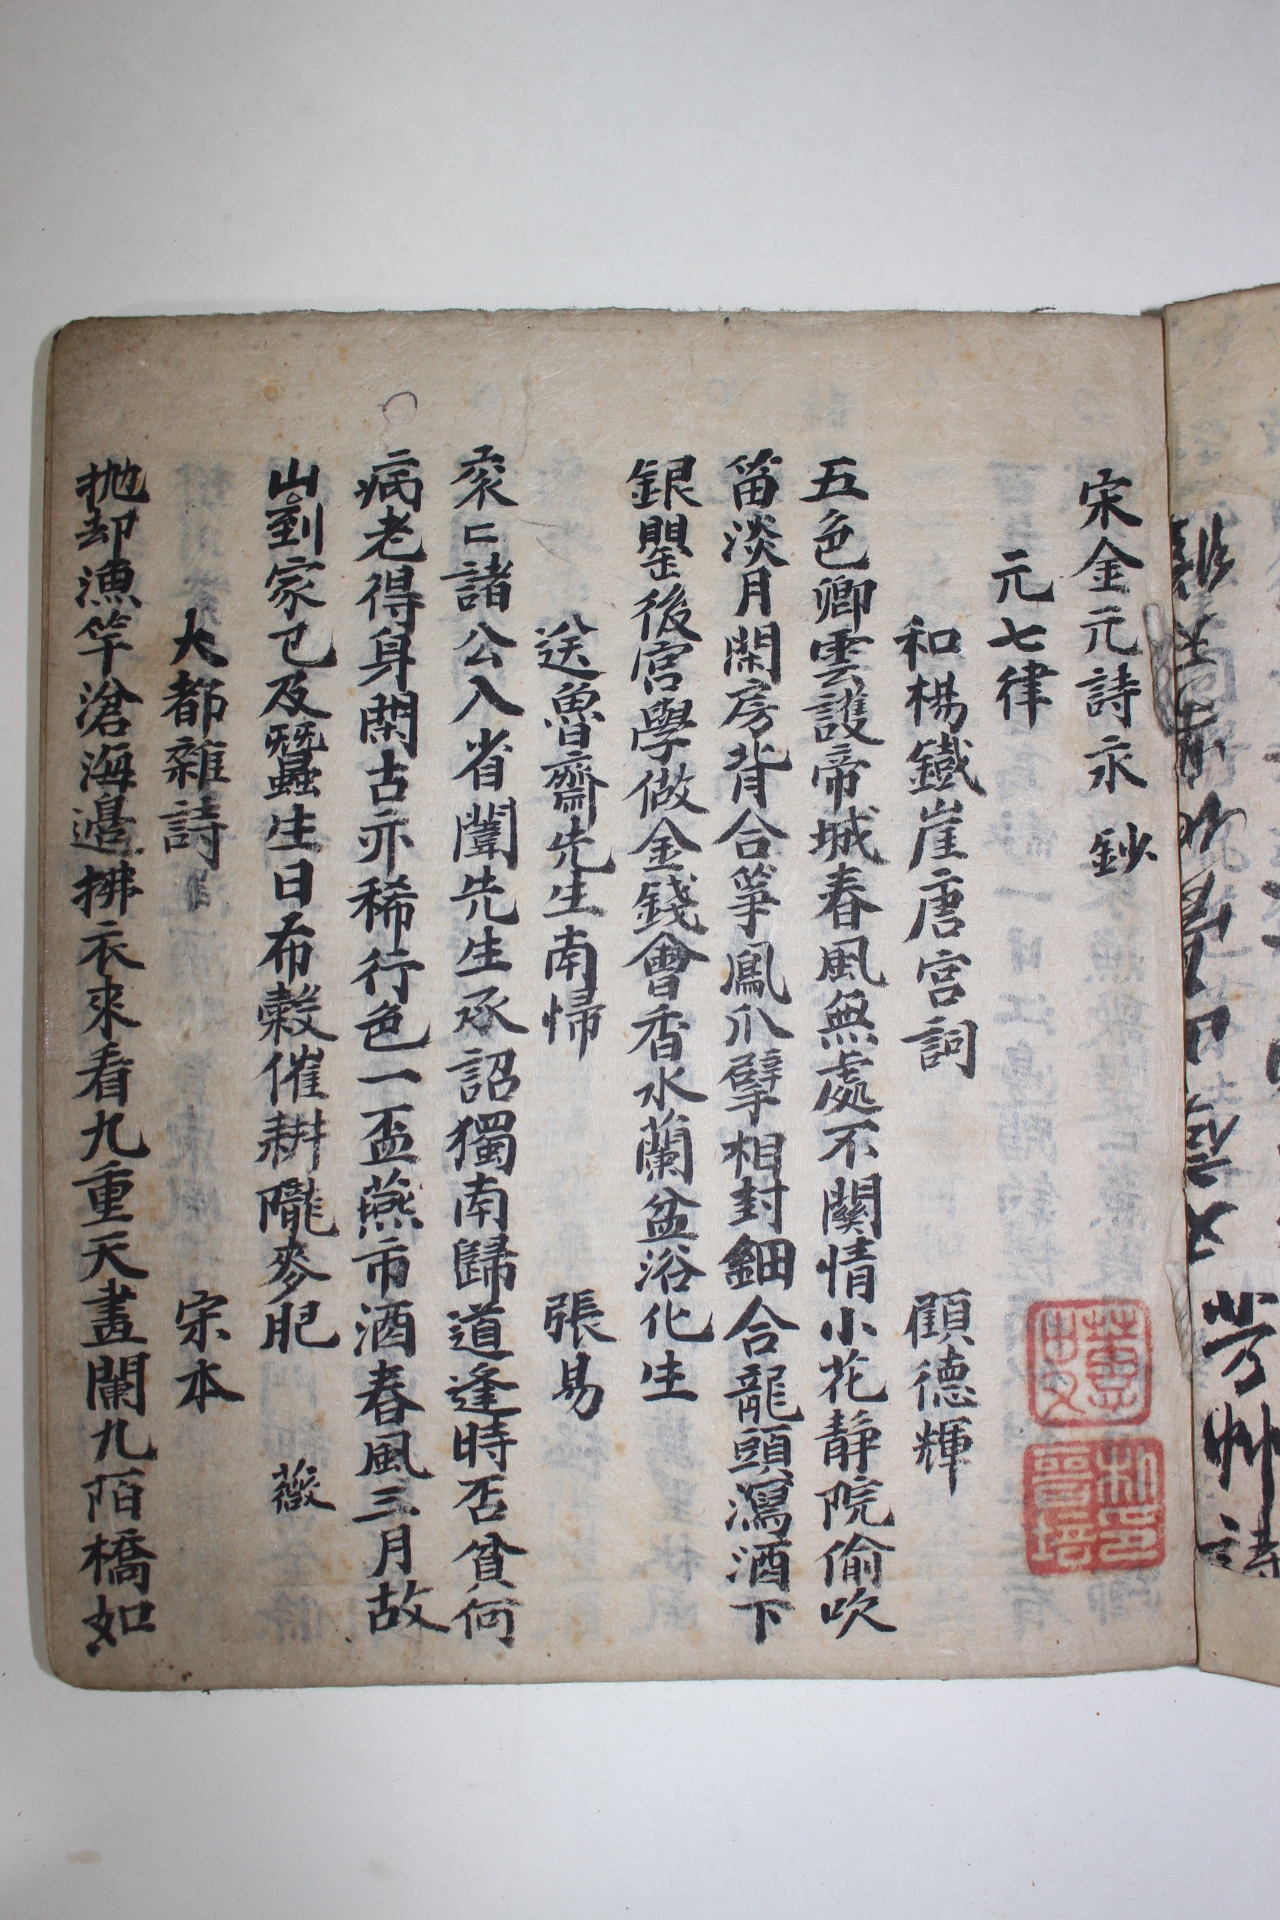 宋金元詩永 鈔
元七律
和楊鐵崖唐宮詞 顧德輝
五色卿雲護帝城春風無處不關情小花靜院偷吹
笛淡月閑房背合箏鳳爪擘相封鈿合龍頭瀉酒下
銀罌後宮學做金錢會香水蘭盆浴化生
送魯齋先生南歸 張易
袞〻諸公入省闈先生承詔獨南歸道逢時否貧何
病老得身閑古亦稀行色一盃燕市酒春風三月故
山薇到家已及蠶生日布穀催耕隴麥肥
大都雜詩 宋本
抛却漁竿滄海邊拂衣來看九重天晝闌九陌橋如
芳艸詩